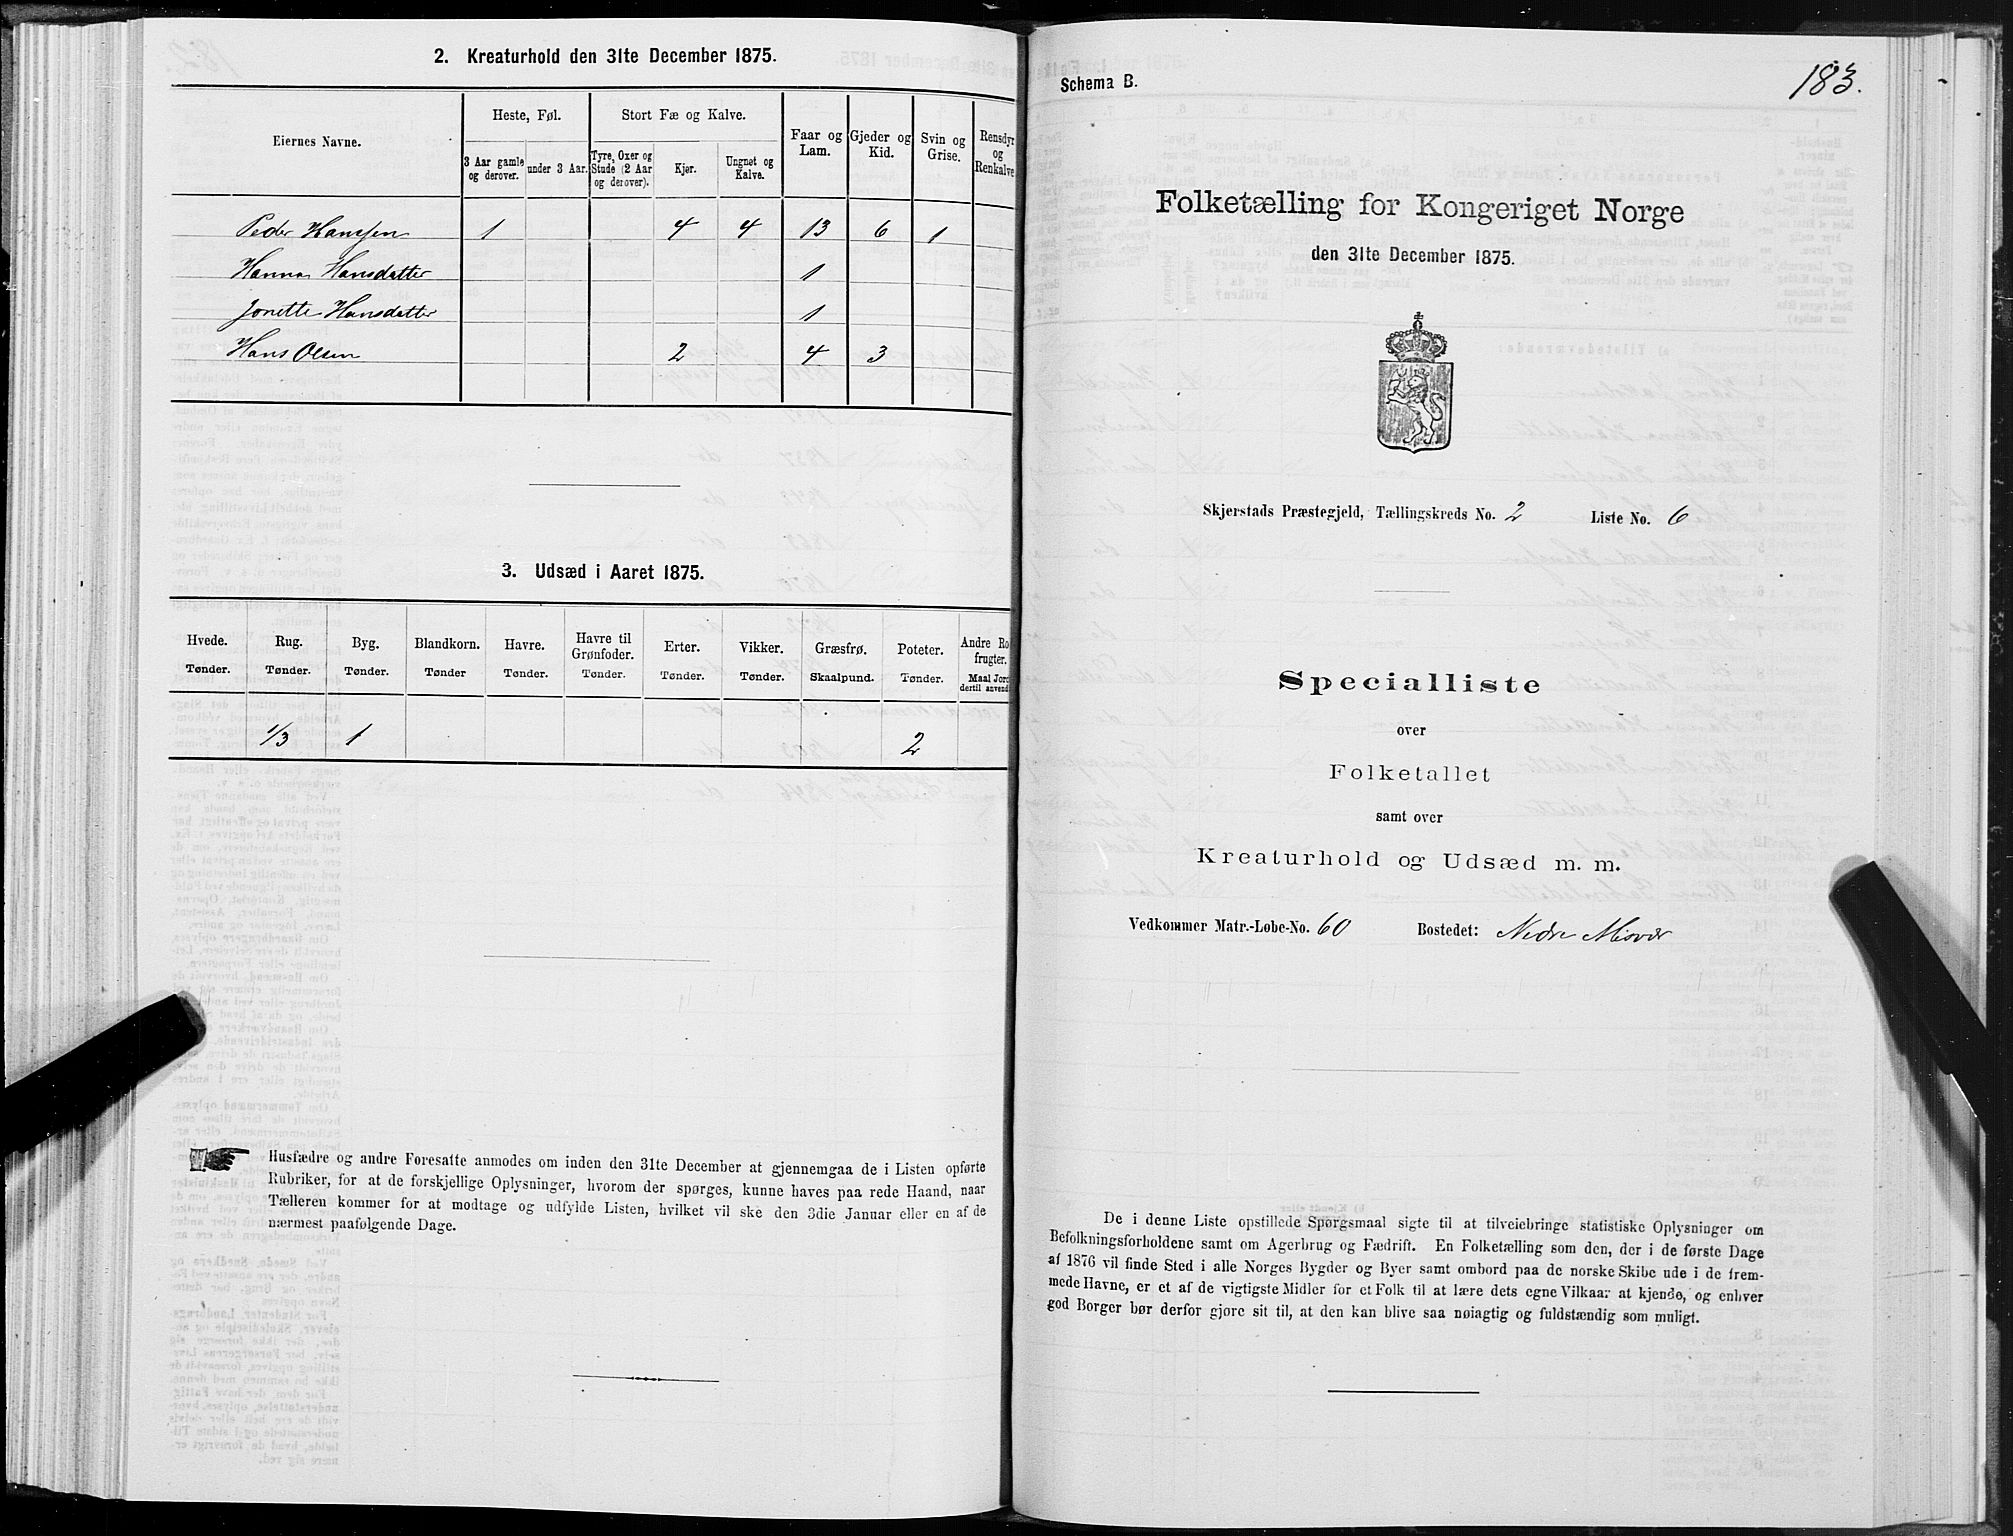 2. Kreaturhold den 31te December 1875.
Eiernes Navne.
Heste, Føl.
Stort Fæ og Kalve.
Faar og Lam.
Gjeder og Kid.
Svin og Grise.
Rensdyr og Renkalve
3 Aar gamle og derover.
under 3 Aar.
Tyre, Oxer og Stude (2 Aar og derover).
Kjør.
Ungnøt og Kalve.
Peder Hanssen 1 4 4 13 6 1
Hanna Hansdatter 1
Jonette Hansdatter 1
Hans Olsen 2 4 3
3. Udsæd i Aaret 1875.
Hvede. Rug. Byg. Blandkorn. Havre. Havre til Grønfoder. Erter. Vikker. Græsfrø. Poteter. Andre Ro frugter.
Tønder. Tønder. Tønder. Tønder Tønder. Tønder. Tønder. Tønder. Skaalpund. Tønder. Maal Jord dertil anvend
1/3 1 2
Husfædre og andre Foresatte anmodes om inden den 31te December at gjennemgaa de i Listen opførte
Rubriker, for at de forskjellige Oplysninger, hvorom der spørges, kunne haves paa rede Haand, naar
Tælleren kommer for at modtage og udfylde Listen, hvilket vil ske den 3die Januar eller en af de
nærmest paafølgende Dage.
Schema B.
183.
Folketælling for Kongeriget Norge
den 31te December 1875.
Skjerstads Præstegjeld, Tællingskreds No. 2 Liste No. 6
Specialliste
over
Folketallet
samt over
Kreaturhold og Udsæd m. m.
Vedkommer Matr.-Løbe-No. 60 Bostedet: Nedre Misvær
De i denne Liste opstillede Spørgsmaal sigte til at tilveiebringe statistiske Oplysninger om
Befolkningsforholdene samt om Agerbrug og Fædrift. En Folketælling som den, der i de første Dage
af 1876 vil finde Sted i alle Norges Bygder og Byer samt ombord paa de norske Skibe ude i de frem-
mede Havne, er et af de vigtigste Midler for et Folk til at lære dets egne Vilkaar at kjende, og enhver
god Borger bør derfor gjøre sit til, at den kan blive saa nøiagtig og fuldstændig som muligt.